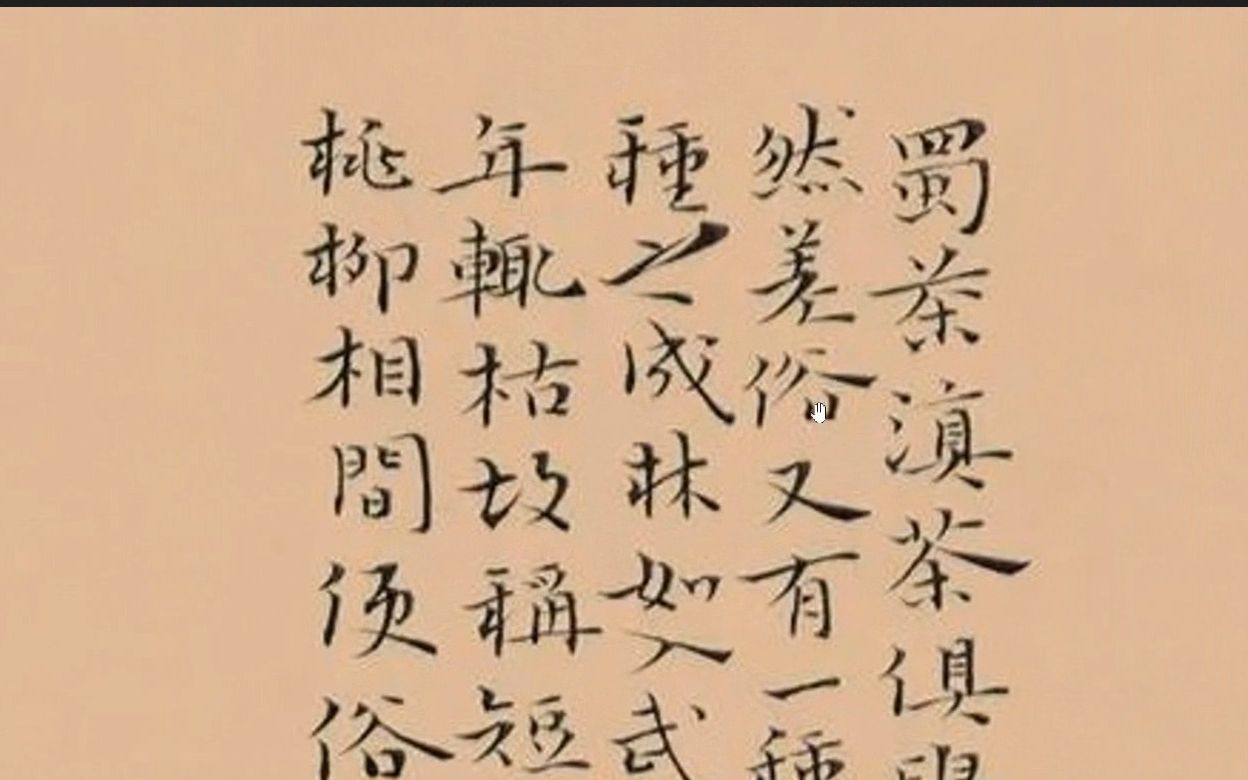 蜀茶滇茶俱
然差俗又有一種
種之成林如入武
年輒枯故稱短
桃柳相間便俗